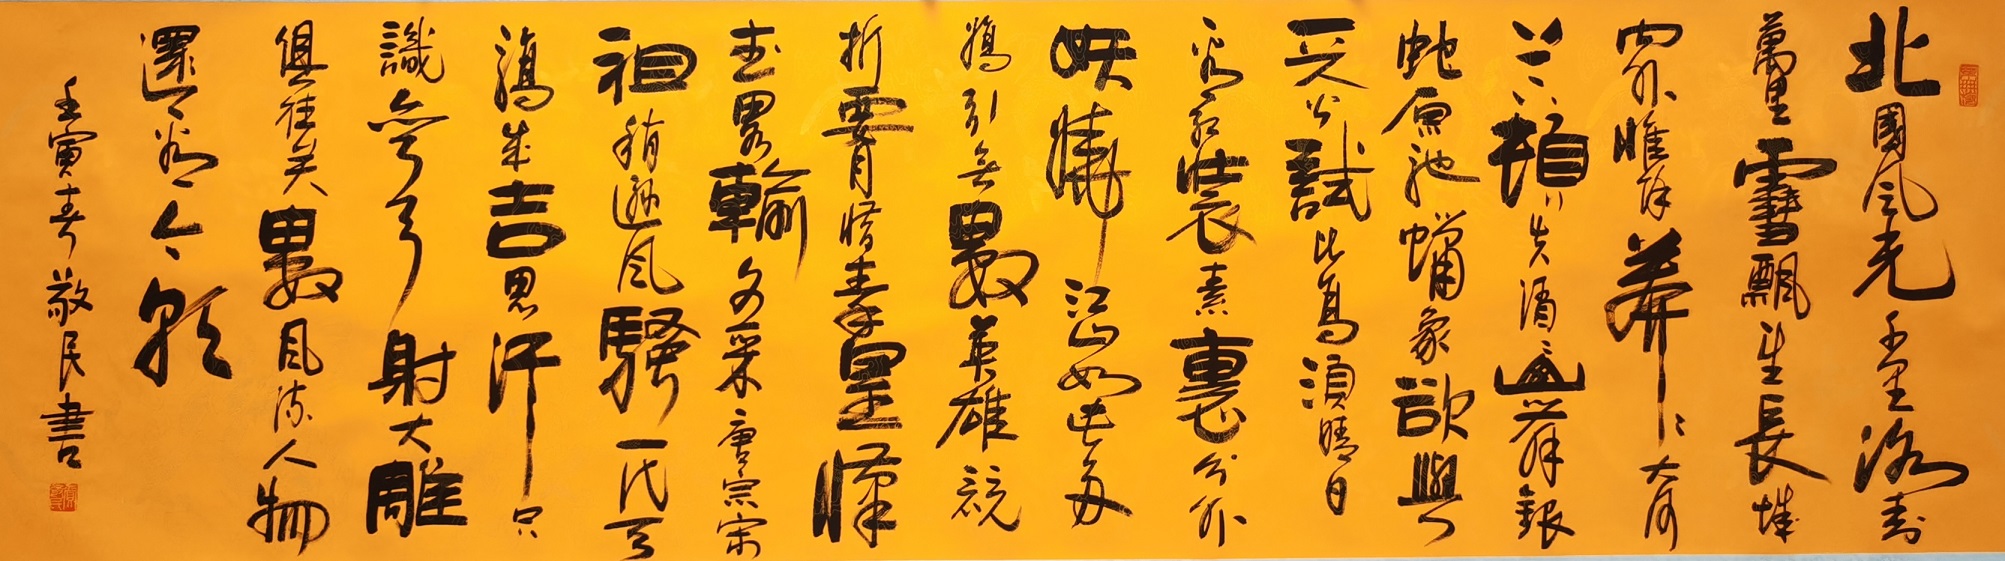 北國风光千里冰封
萬里雪飄望長城
內外惟餘莽莽大河
上下頓失滔滔山舞銀
蛇原馳蠟象欲與
天公試比高須晴日
看紅裝素裹分外
妖嬈江山如此多
嬌引無數英雄競
折腰惜秦皇漢
武略輸文采唐宗宋
祖稍遜风騷一代天
驕成吉思汗只
識彎弓射大雕
俱往矣數风流人物
還看今朝
壬寅春敬民書